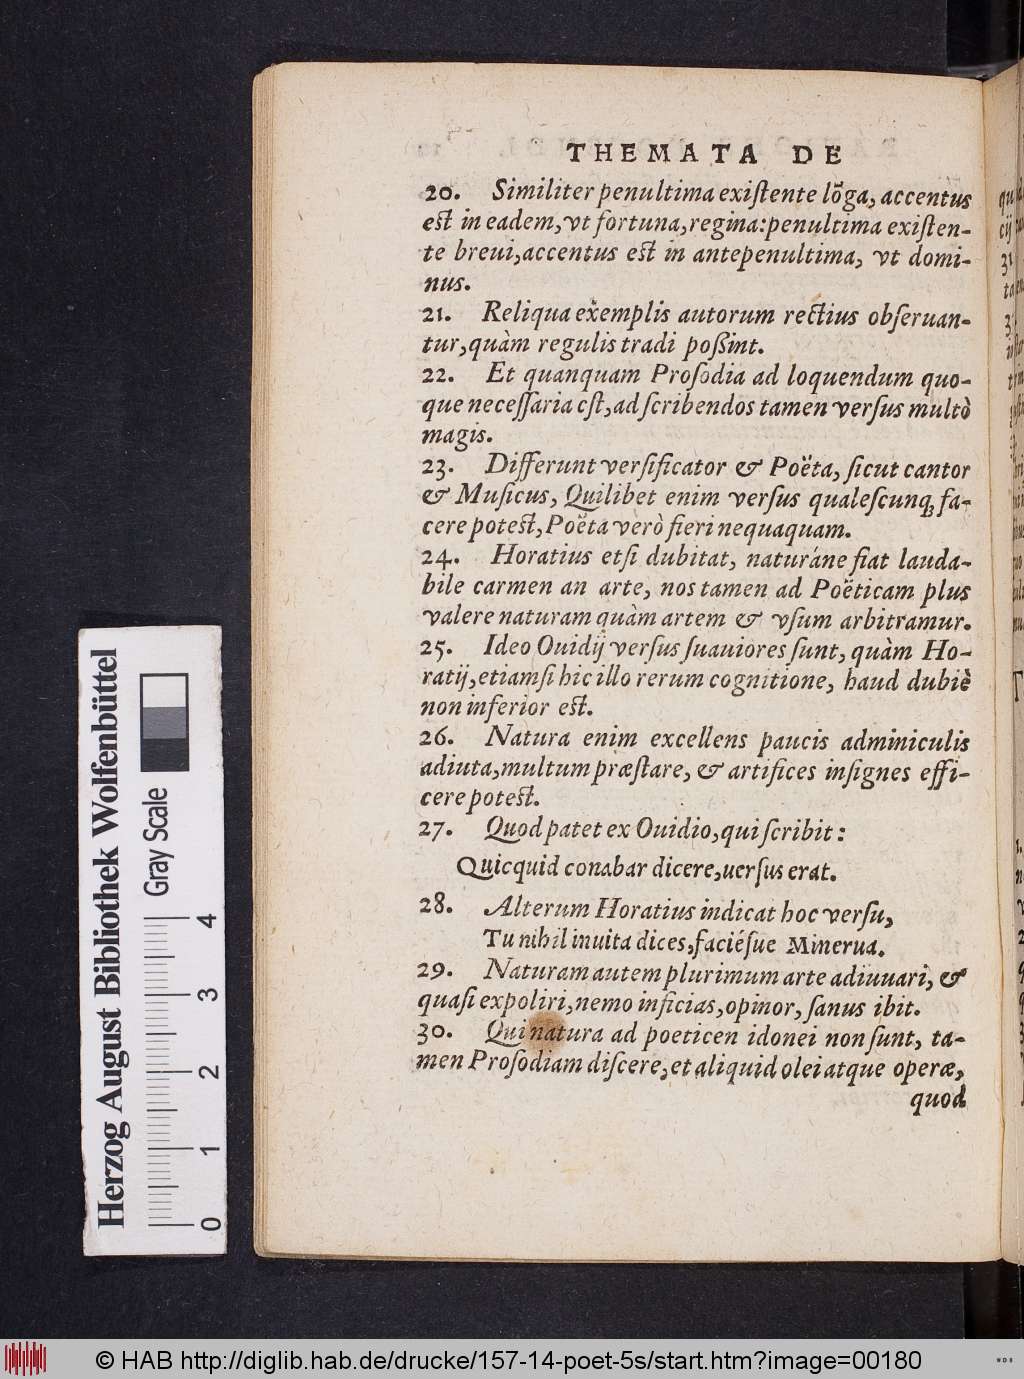 THEMATA DE
20. Similiter penultima exiſtente lõga, accentus
eſt in eadem, vt fortuna, regina: penultima exiſten-
te breui, accentus eſt in antepenultima, vt domi-
nus.
21. Reliqua exemplis autorum rectius obſeruan-
tur, quàm regulis tradi poßint.
22. Et quanquam Proſodia ad loquendum quo-
que neceſſaria eſt, ad ſcribendos tamen verſus multò
magis.
23. Differunt verſificator & Poëta, ſicut cantor
& Muſicus, Quilibet enim verſus qualeſcunq; fa-
cere poteſt, Poëta verò fieri nequaquam.
24. Horatius etſi dubitat, naturáne fiat lauda-
bile carmen an arte, nos tamen ad Poëticam plus
valere naturam quàm artem & vſum arbitramur.
25. Ideo Ouidij verſus ſuauiores ſunt, quàm Ho-
ratij, etiamſi hic illo rerum cognitione, haud dubiè
non inferior eſt.
26. Natura enim excellens paucis adminiculis
adiuta, multum præſtare, & artifices inſignes effi-
cere poteſt.
27. Quod patet ex Ouidio, qui ſcribit:
Quicquid conabar dicere, uerſus erat.
28. Alterum Horatius indicat hoc verſu,
Tu nihil inuita dices, faciéſue Minerua.
29. Naturam autem plurimum arte adiuuari, &
quaſi expoliri, nemo inficias, opinor, ſanus ibit.
30. Qui natura ad poeticen idonei non ſunt, ta-
men Proſodiam diſcere, et aliquid olei atque operæ,
quod
Herzog August Bibliothek Wolfenbüttel
Gray Scale
0 1 2 3 4
© HAB http://diglib.hab.de/drucke/157-14-poet-5s/start.htm?image=00180